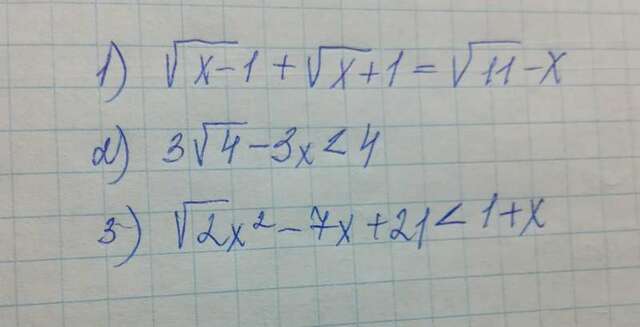 1) √x-1 + √x+1 = √11-x
2) 3√4-3x < 4
3) √2x² - 7x + 21 < 1+x